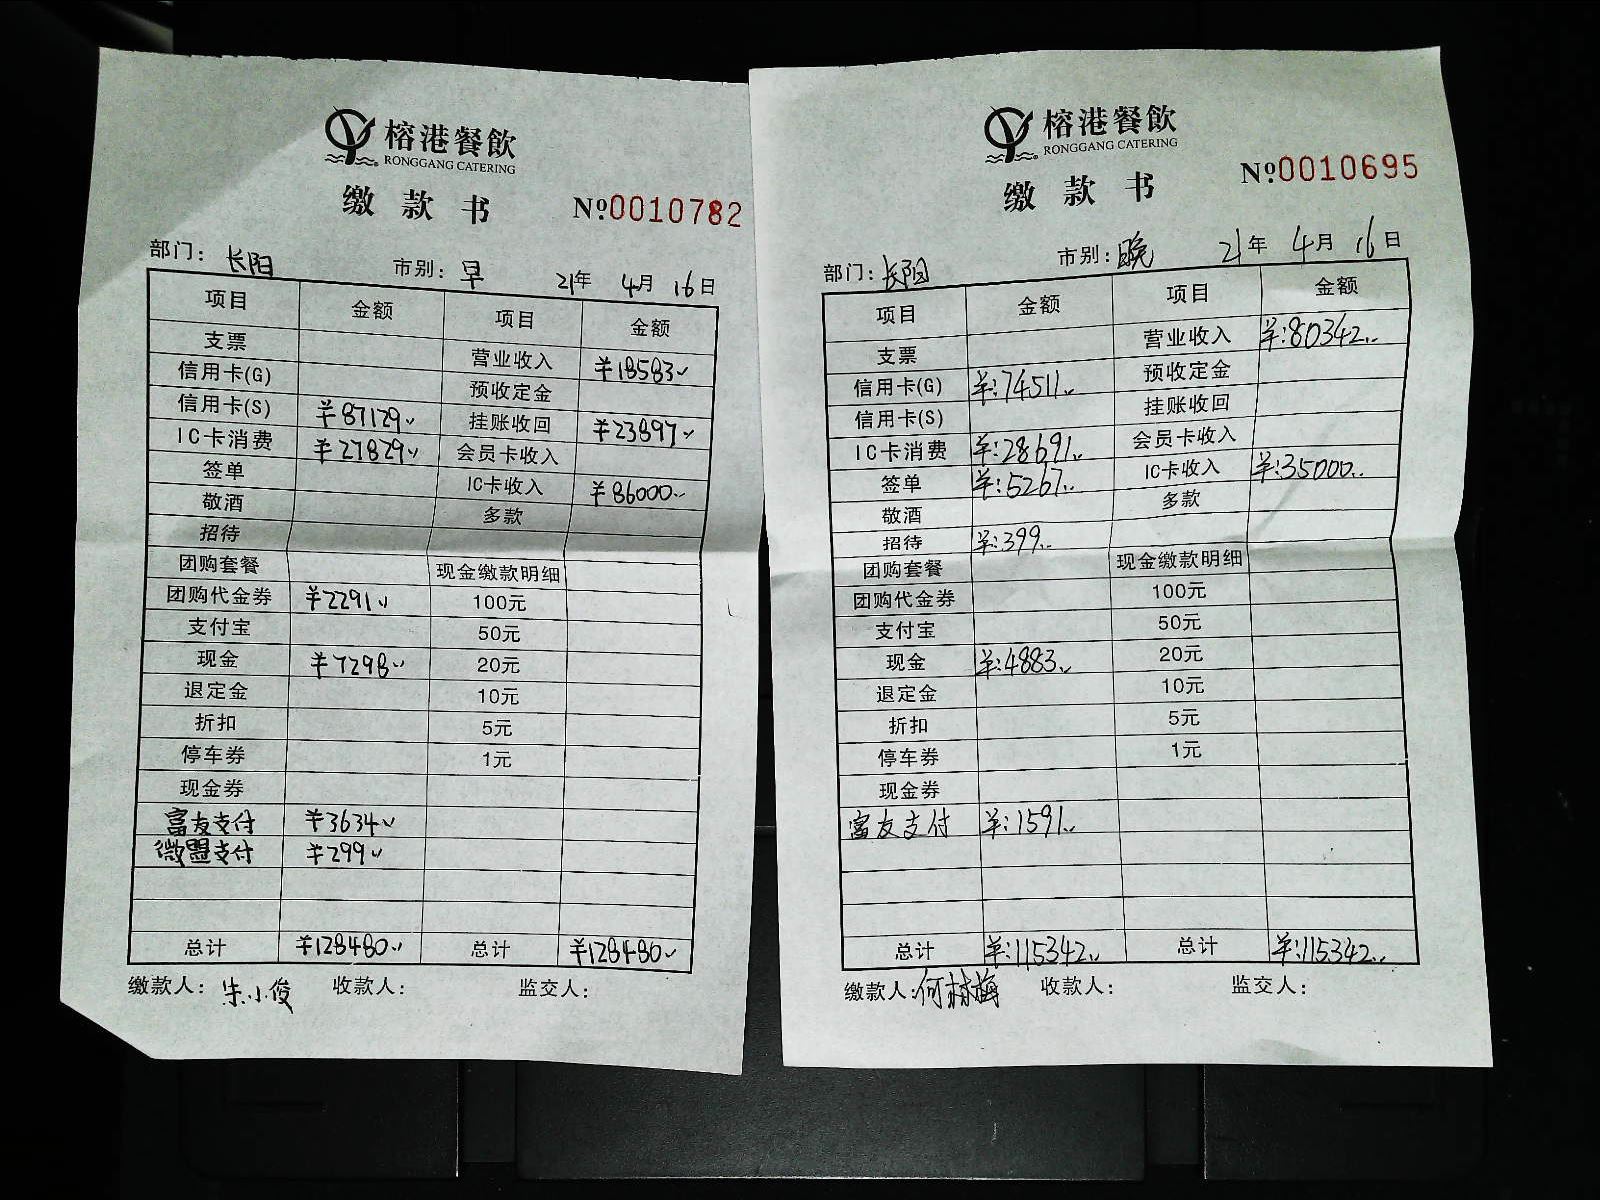 榕港餐飲
RONGGANG CATERING
缴款书 №0010782
部门：长阳 市别：早 21年 4月 16日
项目 金额 项目 金额
支票 营业收入 ¥18583
信用卡(G) 预收定金
信用卡(S) ¥87129 挂账收回 ¥23897
IC卡消费 ¥27829 会员卡收入
签单 IC卡收入 ¥86000
敬酒 多款
招待
团购套餐 现金缴款明细
团购代金券 ¥2291 100元
支付宝 50元
现金 ¥7298 20元
退定金 10元
折扣 5元
停车券 1元
现金券
富友支付 ¥3634
微盟支付 ¥299
总计 ¥128480 总计 ¥128480
缴款人：朱小俊 收款人： 监交人：
榕港餐飲
RONGGANG CATERING
缴款书 №0010695
部门：长阳 市别：晚 21年 4月 16日
项目 金额 项目 金额
支票 营业收入 ¥:80342
信用卡(G) ¥:74511 预收定金
信用卡(S) 挂账收回
IC卡消费 ¥:28691 会员卡收入
签单 ¥:5267 IC卡收入 ¥:35000
敬酒 多款
招待 ¥:399
团购套餐 现金缴款明细
团购代金券 100元
支付宝 50元
现金 ¥:4883 20元
退定金 10元
折扣 5元
停车券 1元
现金券
富友支付 ¥:1591
总计 ¥:115342 总计 ¥:115342
缴款人：何林梅 收款人： 监交人：